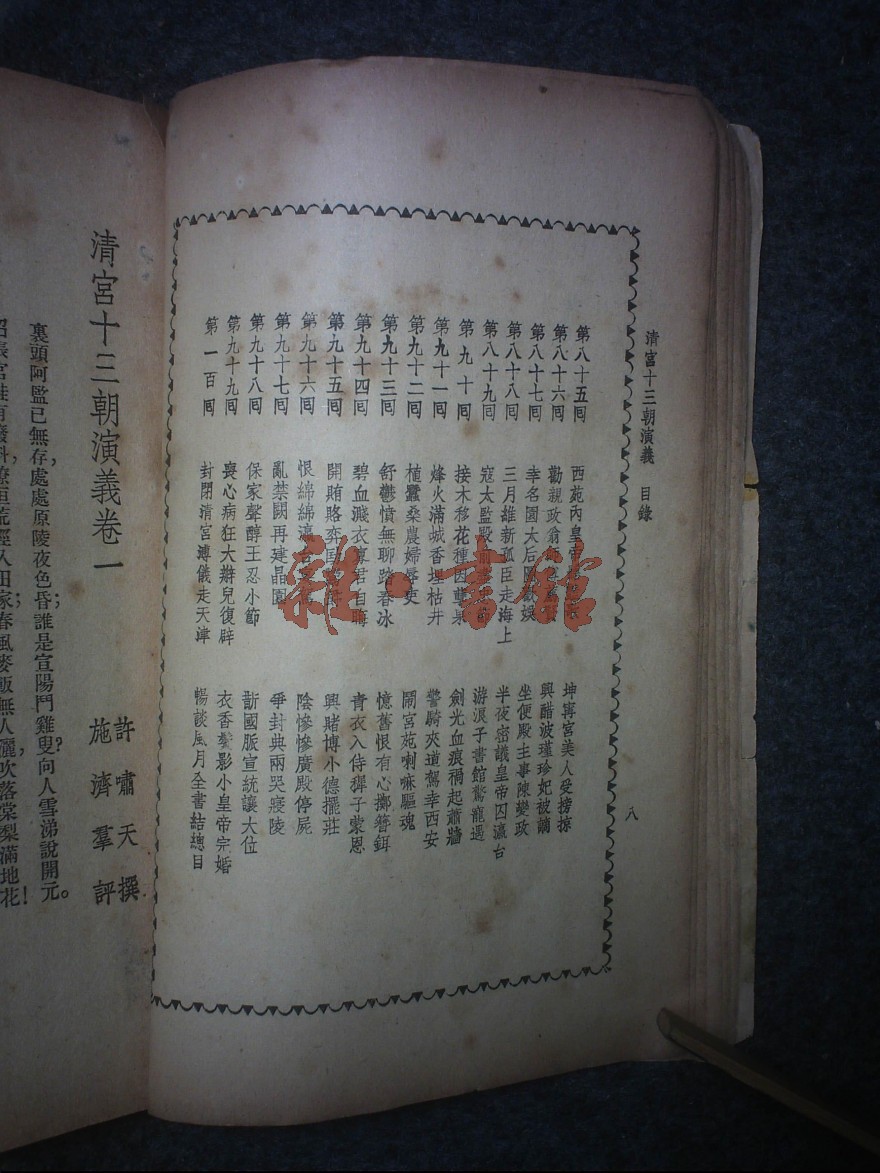 清宮十三朝演義 目錄 八
第八十五囘 西苑內皇帝 坤寧宮美人受搒掠
第八十六囘 勸親政翁師 興醋波瑾珍妃被謫
第八十七囘 幸名園太后圖歡娛 坐便殿主事陳變政
第八十八囘 三月維新孤臣走海上 半夜密議皇帝囚瀛台
第八十九囘 寇太監殿前 游浪子書館驚寵遇
第九十囘 接木移花種因 果 劍光血痕禍起蕭牆
第九十一囘 烽火滿城香埋枯井 警騎夾道駕幸西安
第九十二囘 植蠶桑農婦辱吏 鬧宮苑喇嘛驅魂
第九十三囘 舒鬱憤無聊踏春冰 憶舊恨有心擲簪鉺
第九十四囘 碧血濺衣東君自晦 青衣入侍穉子蒙恩
第九十五囘 開賄賂弈 興賭博小德擺莊
第九十六囘 恨綿綿瀛 陰慘慘廣殿停屍
第九十七囘 亂禁闕再建晶園 爭封典兩哭寢陵
第九十八囘 保家聲醇王忍小節 斷國脈宣統讓大位
第九十九囘 喪心病狂大辮兒復辟 衣香鬢影小皇帝完婚
第一百囘 封閉清宮溥儀走天津 暢談風月全書結總目
雜·書館
清宮十三朝演義卷一
許嘯天 撰
施濟羣 評
裏頭阿監已無存,處處原陵夜色昏;誰是宣陽鬥雞叟?向人雪涕說開元。
家春風麥飯無人灑,吹落棠梨滿地花!